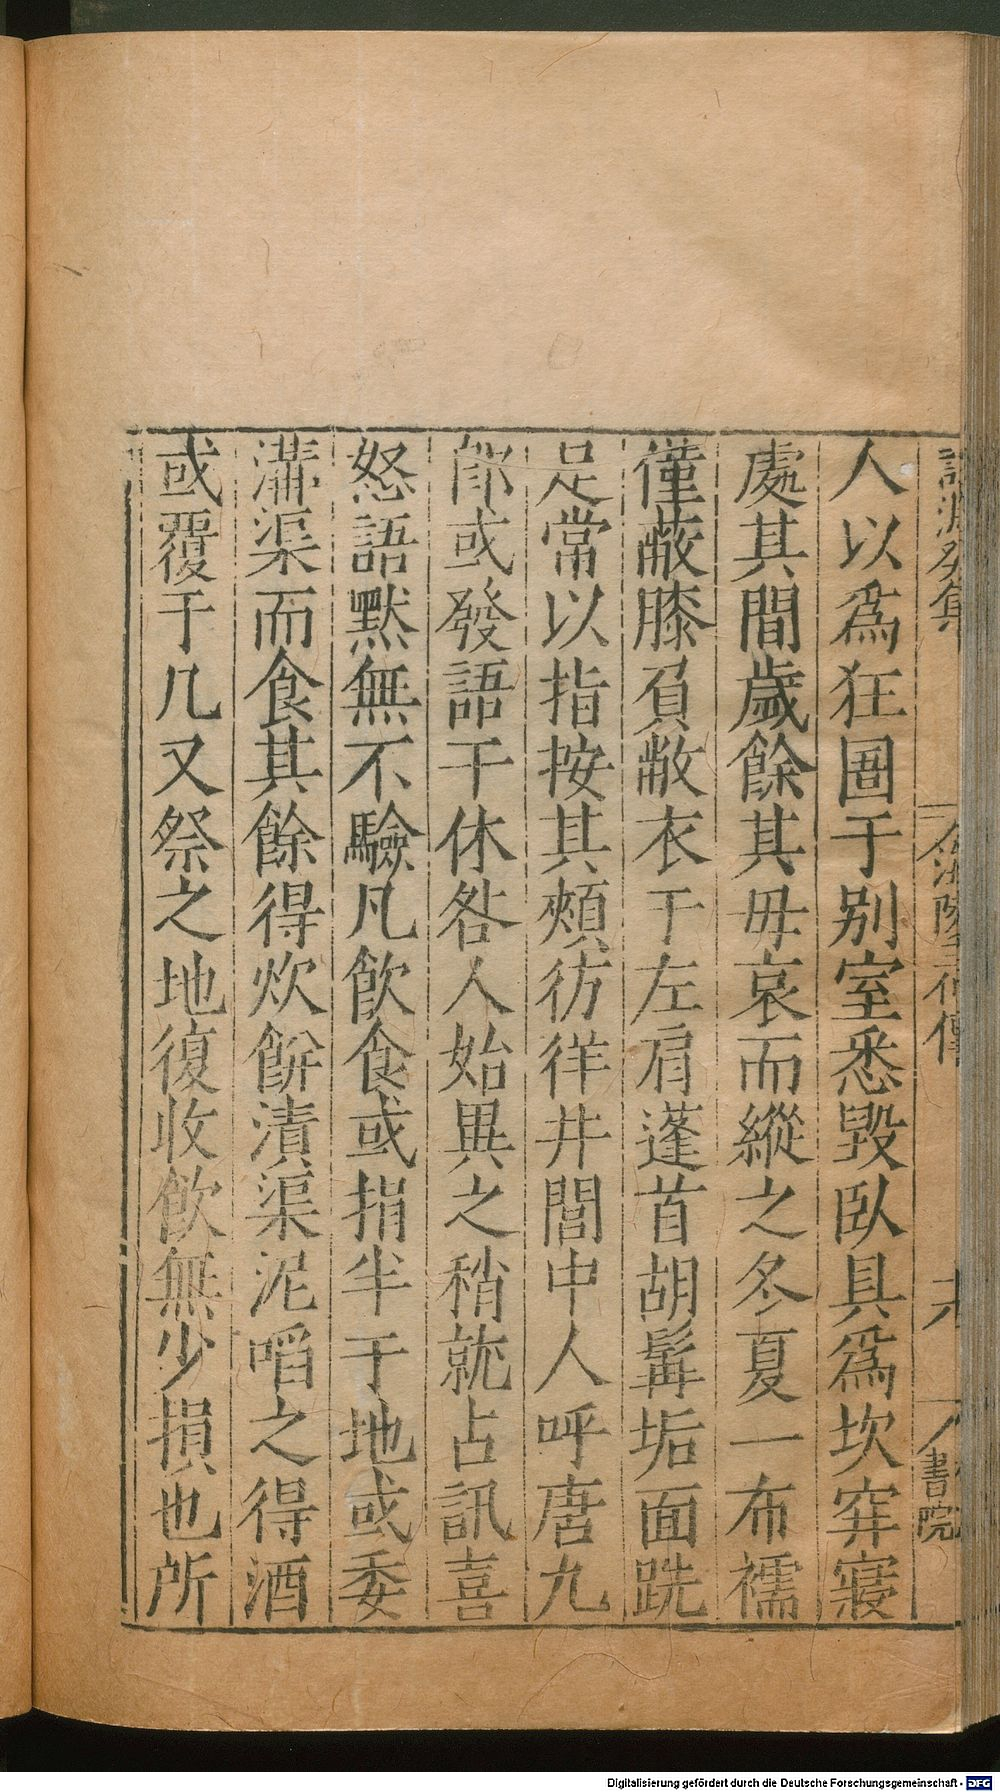 人以爲狂圖于别室悉毀臥具爲坎穽寢
處其間歲餘其毋哀而縱之冬夏一布襦
僅蔽膝負敝衣于左肩蓬首胡髯垢面跣
足常以指按其頰彷徉井閭中人呼唐九
郎或發語干休咎人始異之稍就占訊喜
怒語默無不驗凡飲食或捐半于地或委
溝渠而食其餘得炊餅漬渠泥啗之得酒
或覆于几又祭之地復收飲無少損也所
書院
Digitalisierung gefördert durch die Deutsche Forschungsgemeinschaft - DFG